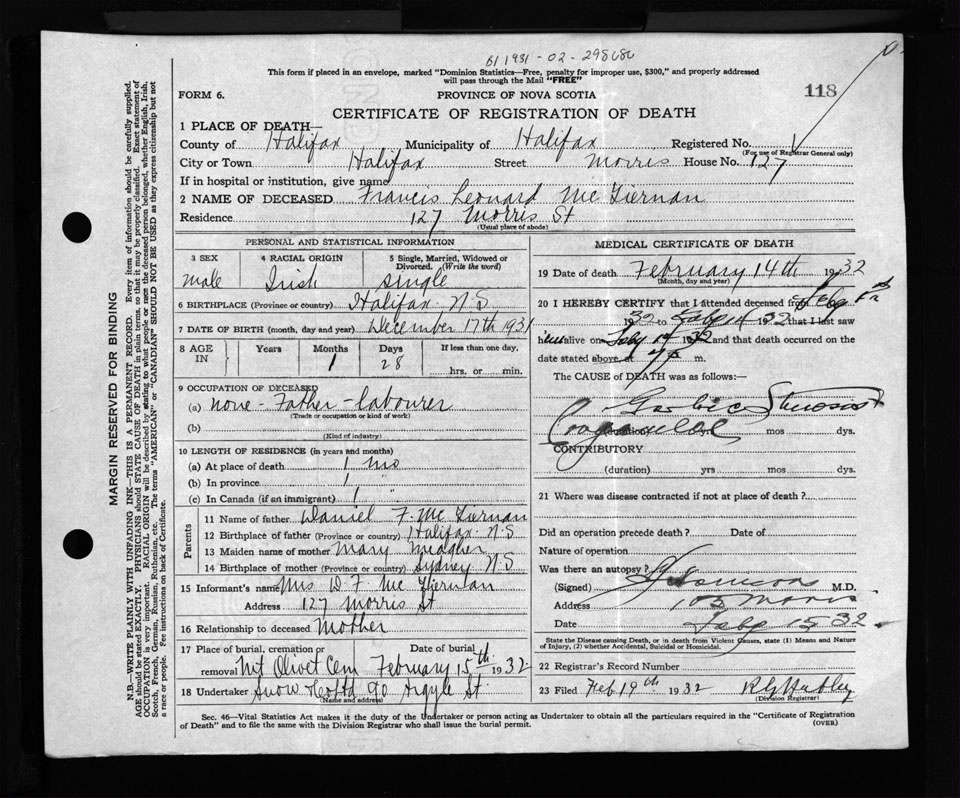 61 1931-02-298686
This form if placed in an envelope, marked "Dominion Statistics—Free, penalty for improper use, $300," and properly addressed
will pass through the Mail "FREE"
FORM 6.
PROVINCE OF NOVA SCOTIA
118
CERTIFICATE OF REGISTRATION OF DEATH
1 PLACE OF DEATH—
County of Halifax Municipality of Halifax Registered No.
(For use of Registrar General only)
City or Town Halifax Street Morris House No. 127
If in hospital or institution, give name
2 NAME OF DECEASED Francis Leonard Mc Tiernan
Residence 127 Morris St
(Usual place of abode)
PERSONAL AND STATISTICAL INFORMATION
3 SEX 4 RACIAL ORIGIN 5 Single, Married, Widowed or
Divorced. (Write the word)
male Irish single
6 BIRTHPLACE (Province or country) Halifax N S
7 DATE OF BIRTH (month, day and year) December 17th 1931
8 AGE IN Years Months Days If less than one day,
1 28 hrs. or min.
9 OCCUPATION OF DECEASED
(a) none - Father - labourer
(Trade or occupation or kind of work)
(b)
(Kind of industry)
10 LENGTH OF RESIDENCE (in years and months)
(a) At place of death 1 mo
(b) In province 1 "
(c) In Canada (if an immigrant) 1 "
Parents
11 Name of father Daniel F. Mc Tiernan
12 Birthplace of father (Province or country) Halifax N.S
13 Maiden name of mother Mary Meagher
14 Birthplace of mother (Province or country) Sydney N S
15 Informant's name Mrs D F. Mc Tiernan
Address 127 Morris St
16 Relationship to deceased Mother
17 Place of burial, cremation or Date of burial
removal Mt Olivet Cem February 15th 1932
18 Undertaker Snow Co Ltd 90 Argyle St
(Name and address)
MEDICAL CERTIFICATE OF DEATH
19 Date of death February 14th 1932
(Month, day and year)
20 I HEREBY CERTIFY that I attended deceased from Feby
1932 to Feby 14 1932 that I last saw
him alive on Feby 14 1932 and that death occurred on the
date stated above, at m.
The CAUSE of DEATH was as follows:—
Stenosis
(duration) yrs mos dys.
CONTRIBUTORY
(duration) yrs mos dys.
21 Where was disease contracted if not at place of death?
Did an operation precede death? Date of
Nature of operation
Was there an autopsy?
(Signed) M.D.
Address 103 Morris
Date Feby 15 32
State the Disease causing Death, or in death from Violent Causes, state (1) Means and Nature
of Injury, (2) whether Accidental, Suicidal or Homicidal.
22 Registrar's Record Number
23 Filed Feb 19th 1932
(Division Registrar)
Sec. 46—Vital Statistics Act makes it the duty of the Undertaker or person acting as Undertaker to obtain all the particulars required in the "Certificate of Registration
of Death" and to file the same with the Division Registrar who shall issue the burial permit.
(OVER)
MARGIN RESERVED FOR BINDING
N.B.—WRITE PLAINLY WITH UNFADING INK—THIS IS A PERMANENT RECORD. Every item of information should be carefully supplied.
AGE should be stated EXACTLY. PHYSICIANS should STATE CAUSE OF DEATH in plain terms, so that it may be properly classified. Exact statement of
OCCUPATION is very important. RACIAL ORIGIN will be described by stating to what people or race the deceased person belonged, whether English, Irish,
Scotch, French, German, Russian, Ruthenian, etc. The terms "AMERICAN" or "CANADIAN" SHOULD NOT BE USED as they express citizenship but not
a race or people. Fee instructions on back of Certificate.